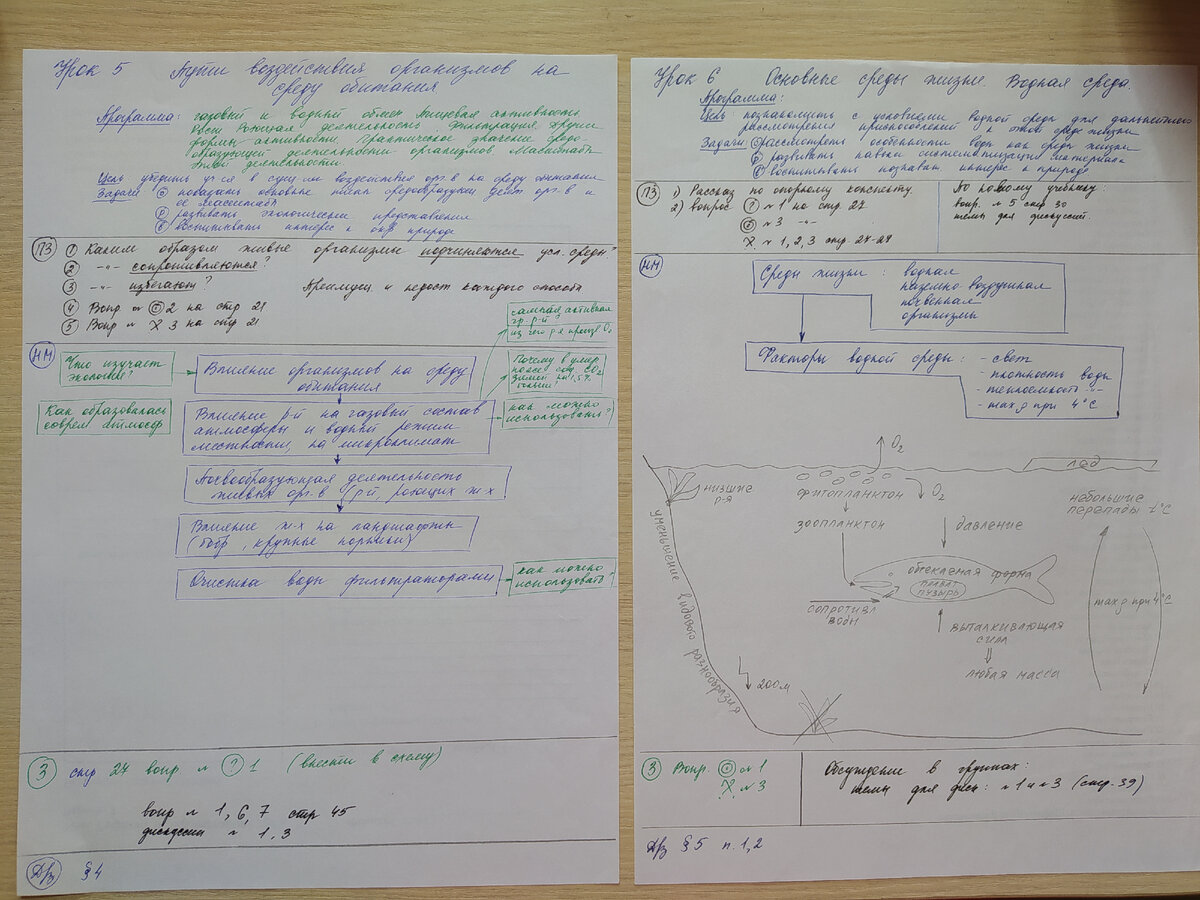 Урок 5 Пути воздействия организмов на
среду обитания
Программа: газовый и водный обмен. Пищевая активность
Роющая деятельность. Фильтрация. Другие
формы активности. Практическое значение средо-
образующей деятельности организмов. Масштабы
этой деятельности.
Цель: убедить уч-ся в сущ-ии воздействия орг-в на среду обитания
Задачи: О показать основные типы средообразующ деят. орг-в и
её масштаб
Р развивать экологические представления
В воспитывать интерес к окр природе
ПЗ
1 Каким образом живые организмы подчиняются усл. среды?
2 -"- сопротивляются?
3 -"- избегают? Преимущ. и недост каждого способа
4 Вопр. № 2 на стр 21
5 Вопр № Х 3 на стр 21
НМ
Что изучает
экология?
Как образовалась
соврем. атмосф
Влияние организмов на среду
обитания
Влияние р-й на газовый состав
атмосферы и водный режим
местности, на микроклимат
Почвообразующая деятельность
живых орг-в (р-й, роющих ж-х
Влияние ж-х на ландшафты
(бобр, крупные копытн)
Очистка воды фильтраторами
самая активная
гр. р-й?
из чего р-я произв O₂
Почему в умер.
поясе сод. CO₂
зимой на 1,5%
больше?
как можно
использовать?
как можно
использовать
З стр 27 вопр № ? 1 (внести в схему)
вопр № 1, 6, 7 стр 45
дискуссии № 1, 3
Д/з § 4
Урок 6 Основные среды жизни. Водная среда.
Программа:
Цель: познакомить с условиями водной среды для дальнейшего
рассмотрения приспособлений к этой среде жизни
Задачи: О рассмотреть особенности воды как среды жизни
Р развивать навыки систематизации материала
В воспитывать познават. интерес к природе
ПЗ
1) Рассказ по опорному конспекту
2) вопрос ? № 1 на стр 27
№ 3 -"-
Х № 1, 2, 3 стр. 27-29
По новому учебнику
вопр. № 5 стр 30
темы для дискуссий.
НМ
Среды жизни: водная
наземно-воздушная
почвенная
организмы
Факторы водной среды: - свет
- плотность воды
- теплоёмкость -"-
- max ρ при 4°C
O₂
лёд
низшие
р-я
фитопланктон
O₂
небольшие
перепады t°C
зоопланктон
давление
обтекаемая форма
плават
пузырь
сопротивл
воды
max ρ при 4°C
выталкивающая
сила
любая масса
уменьшение видового разнообразия
200м
З Вопр. № 1
Х № 3
Обсуждение в группах:
темы для диск: № 1 и № 3 (стр. 39)
Д/з § 5 п. 1, 2